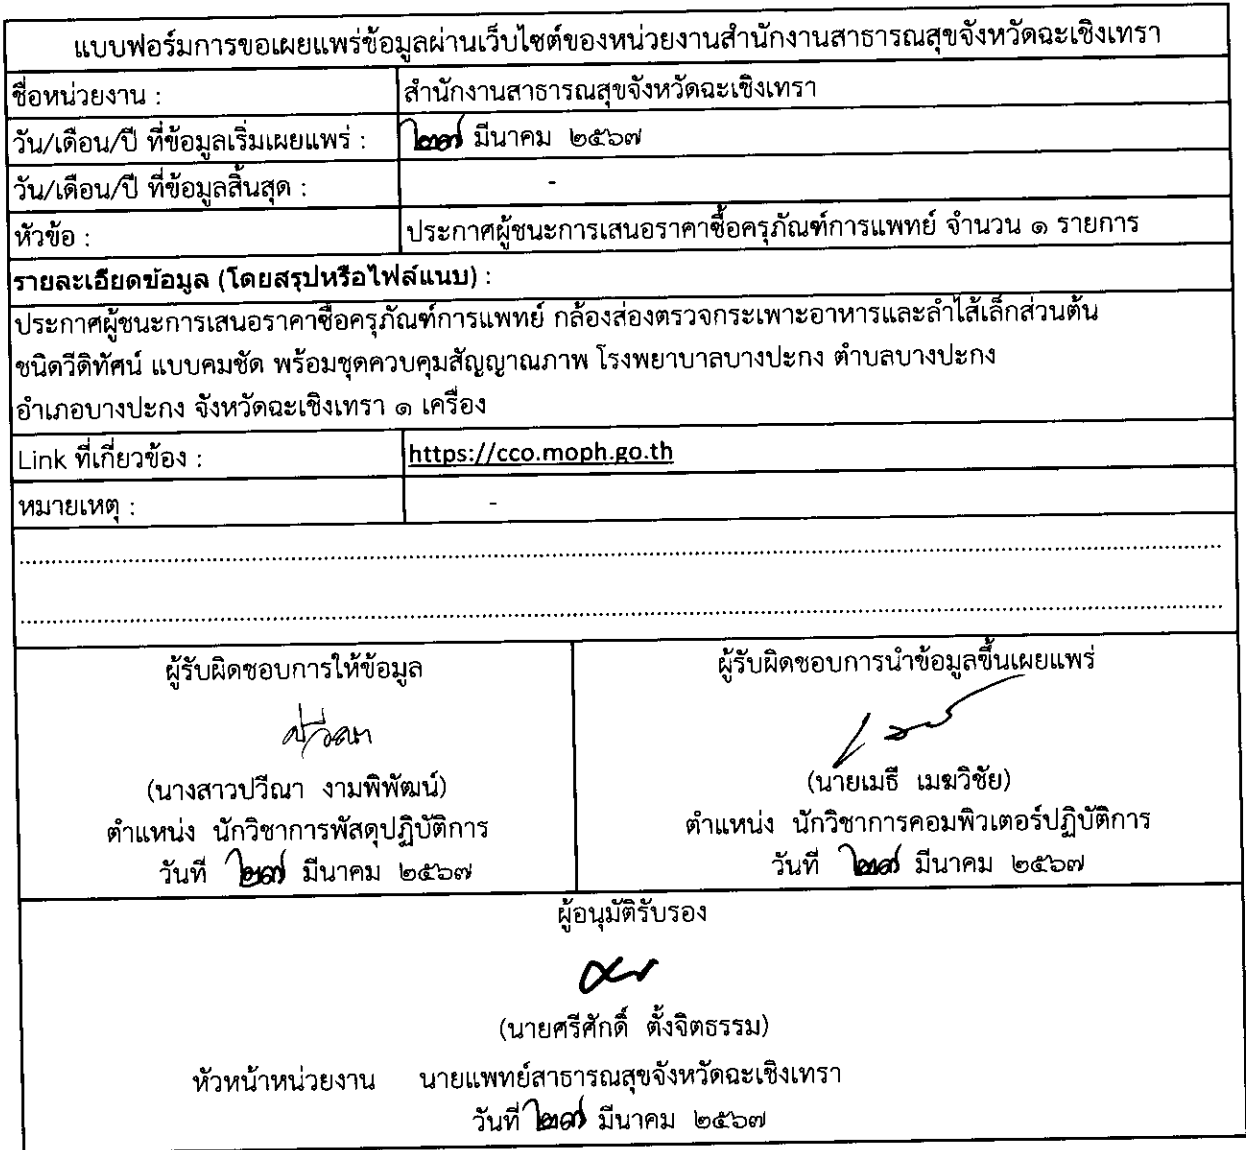 แบบฟอร์มการขอเผยแพร่ข้อมูลผ่านเว็บไซต์ของหน่วยงานสำนักงานสาธารณสุขจังหวัดฉะเชิงเทรา
ชื่อหน่วยงาน : สำนักงานสาธารณสุขจังหวัดฉะเชิงเทรา
วัน/เดือน/ปี ที่ข้อมูลเริ่มเผยแพร่ : ๒๗ มีนาคม ๒๕๖๗
วัน/เดือน/ปี ที่ข้อมูลสิ้นสุด : -
หัวข้อ : ประกาศผู้ชนะการเสนอราคาซื้อครุภัณฑ์การแพทย์ จำนวน ๑ รายการ
รายละเอียดข้อมูล (โดยสรุปหรือไฟล์แนบ) :
ประกาศผู้ชนะการเสนอราคาซื้อครุภัณฑ์การแพทย์ กล้องส่องตรวจกระเพาะอาหารและลำไส้เล็กส่วนต้น
ชนิดวีดิทัศน์ แบบคมชัด พร้อมชุดควบคุมสัญญาณภาพ โรงพยาบาลบางปะกง ตำบลบางปะกง
อำเภอบางปะกง จังหวัดฉะเชิงเทรา ๑ เครื่อง
Link ที่เกี่ยวข้อง : https://cco.moph.go.th
หมายเหตุ : -
ผู้รับผิดชอบการให้ข้อมูล
ปวีณา
(นางสาวปวีณา งามพิพัฒน์)
ตำแหน่ง นักวิชาการพัสดุปฏิบัติการ
วันที่ ๒๗ มีนาคม ๒๕๖๗
ผู้รับผิดชอบการนำข้อมูลขึ้นเผยแพร่
(นายเมธี เมฆวิชัย)
ตำแหน่ง นักวิชาการคอมพิวเตอร์ปฏิบัติการ
วันที่ ๒๗ มีนาคม ๒๕๖๗
ผู้อนุมัติรับรอง
(นายศรีศักดิ์ ตั้งจิตธรรม)
หัวหน้าหน่วยงาน นายแพทย์สาธารณสุขจังหวัดฉะเชิงเทรา
วันที่ ๒๗ มีนาคม ๒๕๖๗